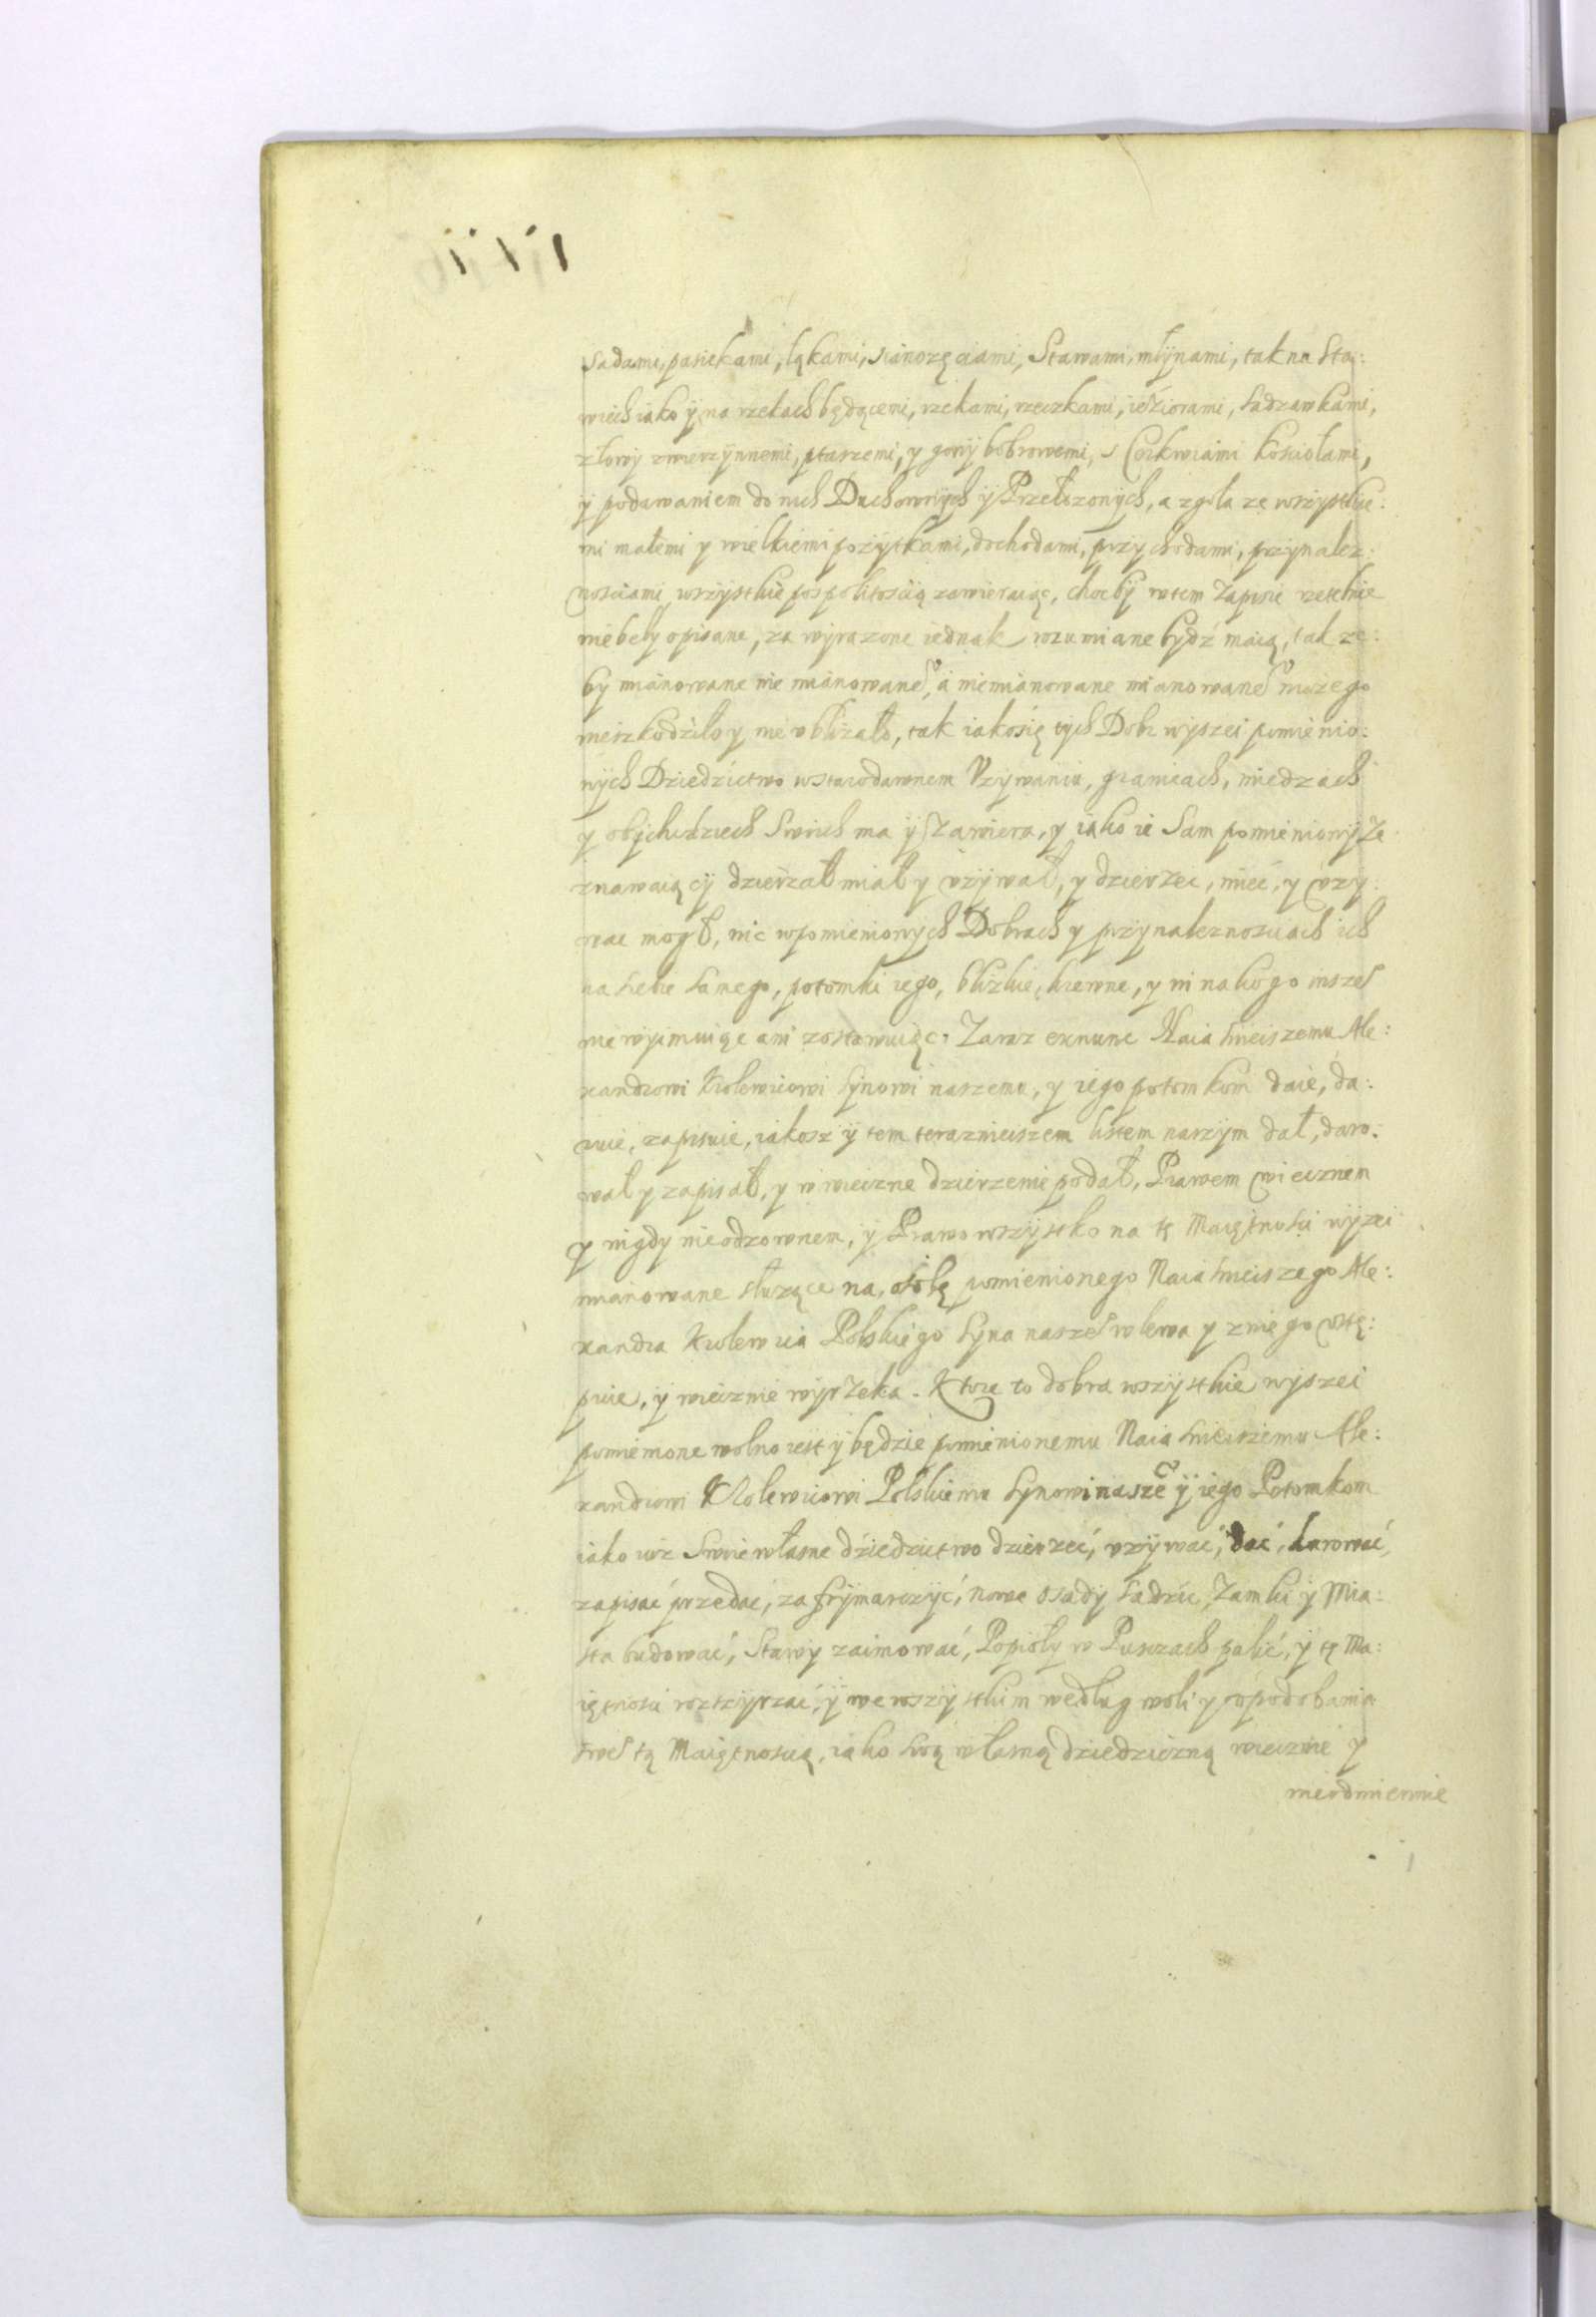 sadami, pasiekami, łąkami, sianozęciami, Stawami, młynami, tak na Sta:
wiech iako ÿ na rzekach będącemi, rzekami, rzeczkami, ieźiorami, sadzawkami,
z łowy zwierzÿnnemi, ptaszemi, y gony bobrowemi, s Cerkwiami kosciołami,
ÿ podawaniem do nich Duchownÿch ÿ Przełozonÿch, a zgoła ze wszÿstkie:
mi małemi y wielkiemi pozÿtkami, dochodami, przychodami, przynalez:
nosciami wszystkie pospolitoscią zawieraiąc, chocby w tem Zapisie rzetelnie
niebeły opisane, za wyrazone iednak rozumiane bydź maią, tak ze:
by mianowane nie mianowane, a niemianowane mianowane
nieszkodziło y nie ubliżało, tak iako się tych Dobr wyszei pomienio:
nych Dziedzictwo w starodawnem Uzywaniu, granicach, miedzach
y obychodziech swoich ma ÿ zawiera, y iako ie Sam pomieniony Ze
znawaiącÿ dzierzał miał y uzÿwał, y dzierzec, mieć, y uzy:
wac mogł, nic w pomienionych Dobrach y przynaleznosciach ich
na siebie samego, potomki iego, blizkie, krewne, y ni na kogo insze
nie wyimuiąc ani zostawuiąc. Zaraz exnunc Naiasnieiszemu Ale:
xandrowi Krolewicowi Synowi naszemu, y iego potomkom daie, da:
ruie, zapisuie, iakosz ÿ tem terazneiszem listem naszym dał, daro:
wał y zapisał, y w wieczne dzierzenie podał, Prawem wiecznem
y nigdy nieodzownem, ÿ Prawo wszystko na tę Maiętnosci wyzei
mianowane słuzące na osobę pomienionego Naiasnieiszego Ale:
xandra Krolewica Polskiego Syna nasze wlewa y z niego ustę:
puie, ÿ wiecznie wyrzeka. Ktore to dobra wszystkie wyszei
pomienione wolno iest ÿ będzie pomienionemu Naiasnieiszemu Ale:
xandrowi Krolewicowi Polskiemu Synowi nasze ÿ iego Potomkom
iako iuz Swoie własne dźiedzictwo dzierzeć, uzywać, dać, darować,
zapisać przedać, zafrymarczyć, nowe osady sadzic, Zamki ÿ Mia:
sta budować, Stawy zaimować, Popioły w Puszczach palić, ÿ tę Ma:
iętnosci rozszyrzać, ÿ we wszystkim według woli y upodobania
swe tą Maiętnoscią, iako swą własną dziedziczną wiecznie y
nieodmiennie